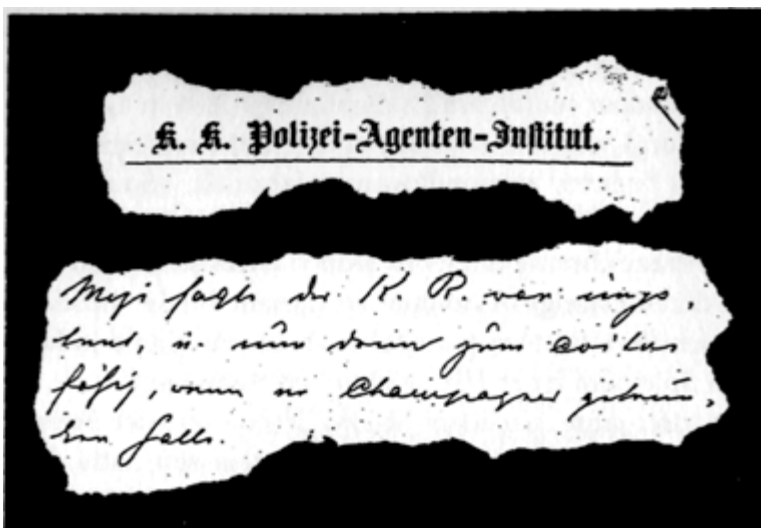 K. K. Polizei-Agenten-Institut.
Mizi sagte der K. R. war impo-
tent, u. nur dann zum Coitus
fähig, wenn er Champagner getrun-
ken hatte.